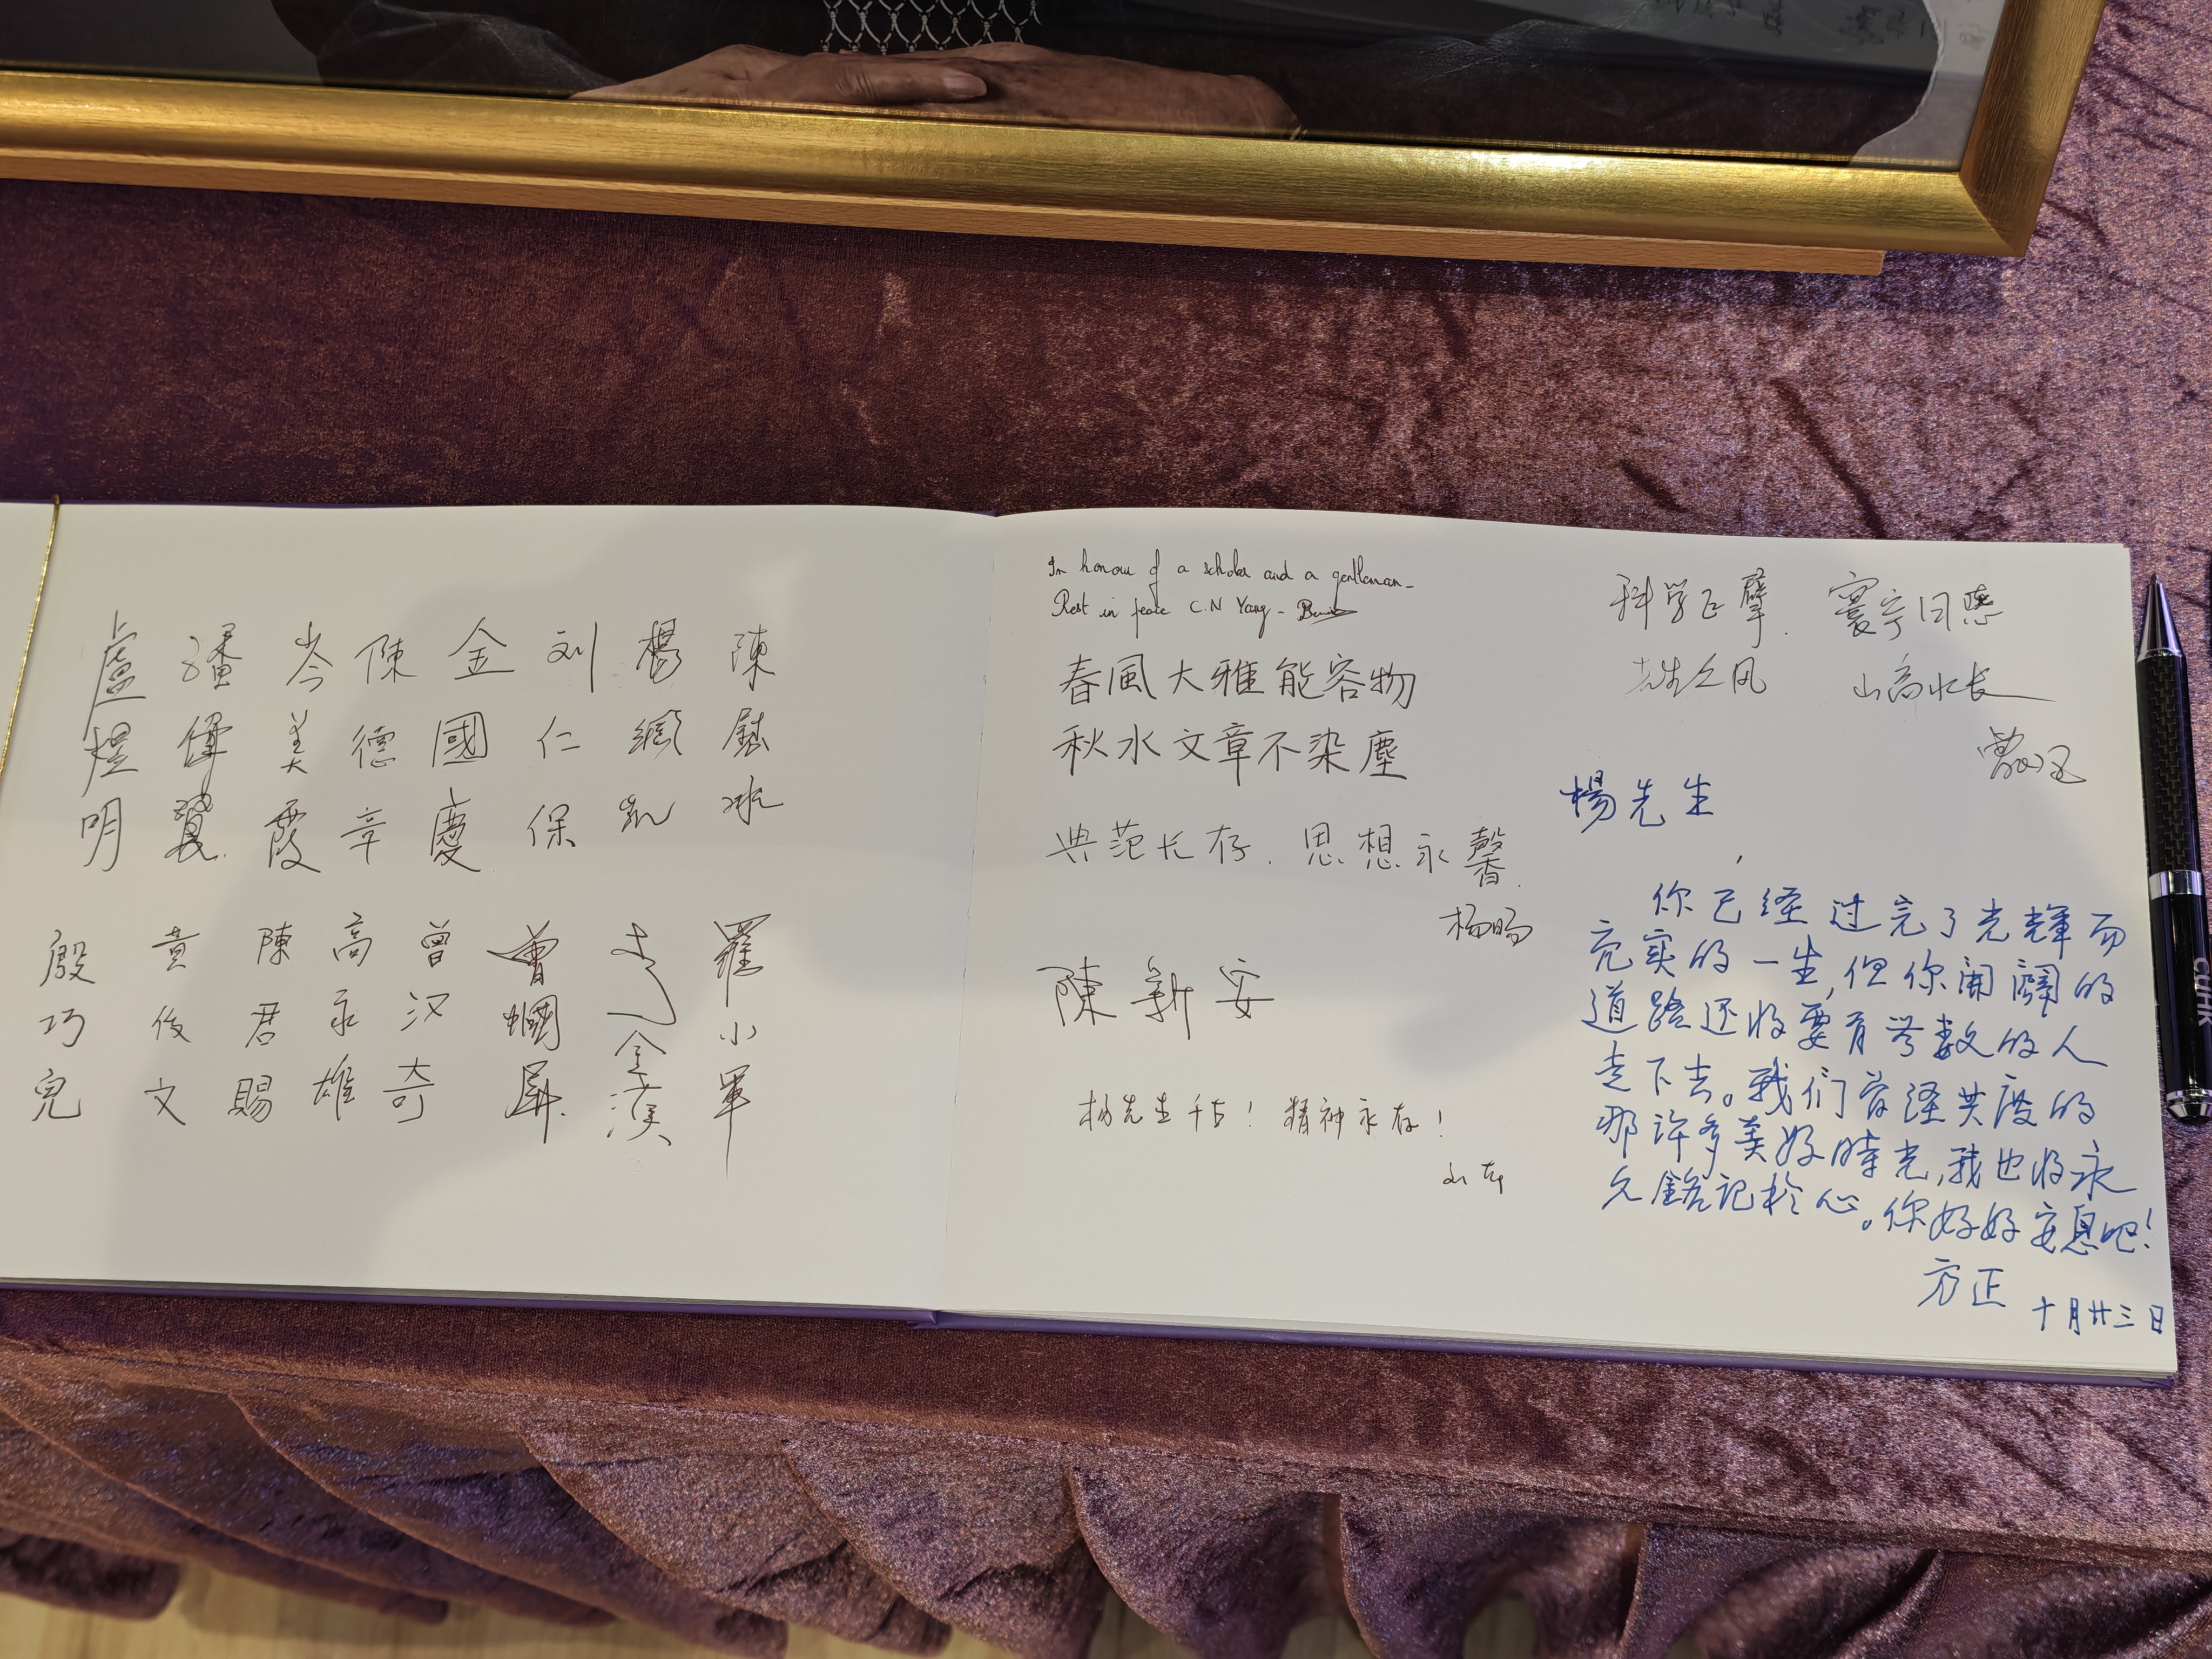 陳
楊
刘仁保
金國慶
陳德章
岑美霞
潘偉賢
盧煜明
羅小軍
李金漢
曾
曾汉奇
高永雄
陳君賜
黃俊文
殷巧兒
In honour of a scholar and a gentleman-
Rest in peace C.N Yang-
春風大雅能容物
秋水文章不染塵
典范长存. 思想永馨.
杨旸
陳新安
杨先生千古! 精神永存!
科学巨擘. 寰宇同悲
先生之风 山高水长
楊先生,
你已经过完了光輝而
充实的一生,但你開闢的
道路还将要有无数的人
走下去。我们曾经共度的
那许多美好時光,我也将永
久銘记於心。你好好安息吧!
方正
十月廿三日
CUHK